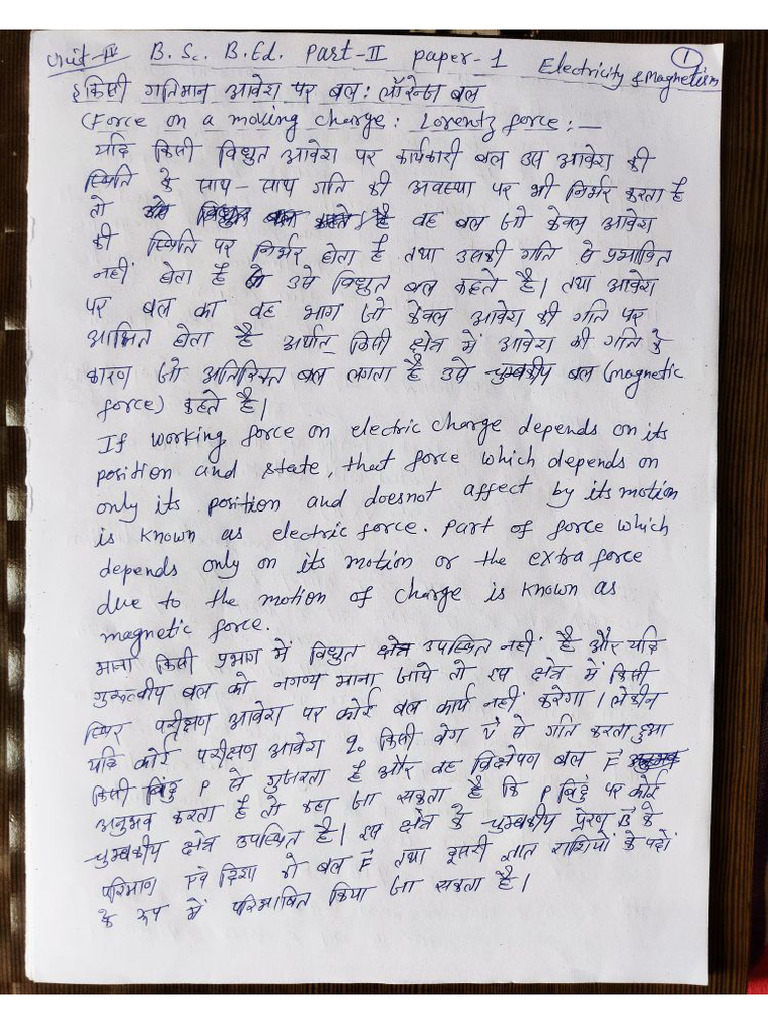 Unit-IV B.Sc. B.Ed. Part-II paper-1 Electricity & Magnetism ①
किसी गतिमान आवेश पर बल: लॉरेन्ज बल
(Force on a moving charge: Lorentz force:—
यदि किसी विद्युत आवेश पर कार्यकारी बल उस आवेश की
स्थिति के साथ-साथ गति की अवस्था पर भी निर्भर करता है
तो वह बल जो केवल आवेश
की स्थिति पर निर्भर होता है तथा उसकी गति से प्रभावित
नहीं होता है उसे विद्युत बल कहते है। तथा आवेश
पर बल का वह भाग जो केवल आवेश की गति पर
आश्रित होता है अर्थात् किसी क्षेत्र में आवेश की गति के
कारण जो अतिरिक्त बल लगता है उसे चुम्बकीय बल (magnetic
force) कहते है।
If working force on electric charge depends on its
position and state, that force which depends on
only its position and doesnot affect by its motion
is known as electric force. part of force which
depends only on its motion or the extra force
due to the motion of charge is known as
magnetic force.
माना किसी प्रभाग में विद्युत क्षेत्र उपस्थित नहीं है और यदि
गुरूत्वीय बल को नगण्य माना जाये तो इस क्षेत्र में किसी
स्थिर परीक्षण आवेश पर कोई बल कार्य नहीं करेगा। लेकीन
यदि कोई परीक्षण आवेश q₀ किसी वेग v⃗ से गति करता हुआ
किसी बिंदु P से गुजरता है और वह विक्षेपण बल F⃗
अनुभव करता है तो कहा जा सकता है कि P बिंदु पर कोई
चुम्बकीय क्षेत्र उपस्थित है। इस क्षेत्र के चुम्बकीय प्रेरण B⃗ के
परिमाण एवं दिशा को बल F⃗ तथा दूसरी ज्ञात राशियों के पदों
के रूप में परिभाषित किया जा सकता है।